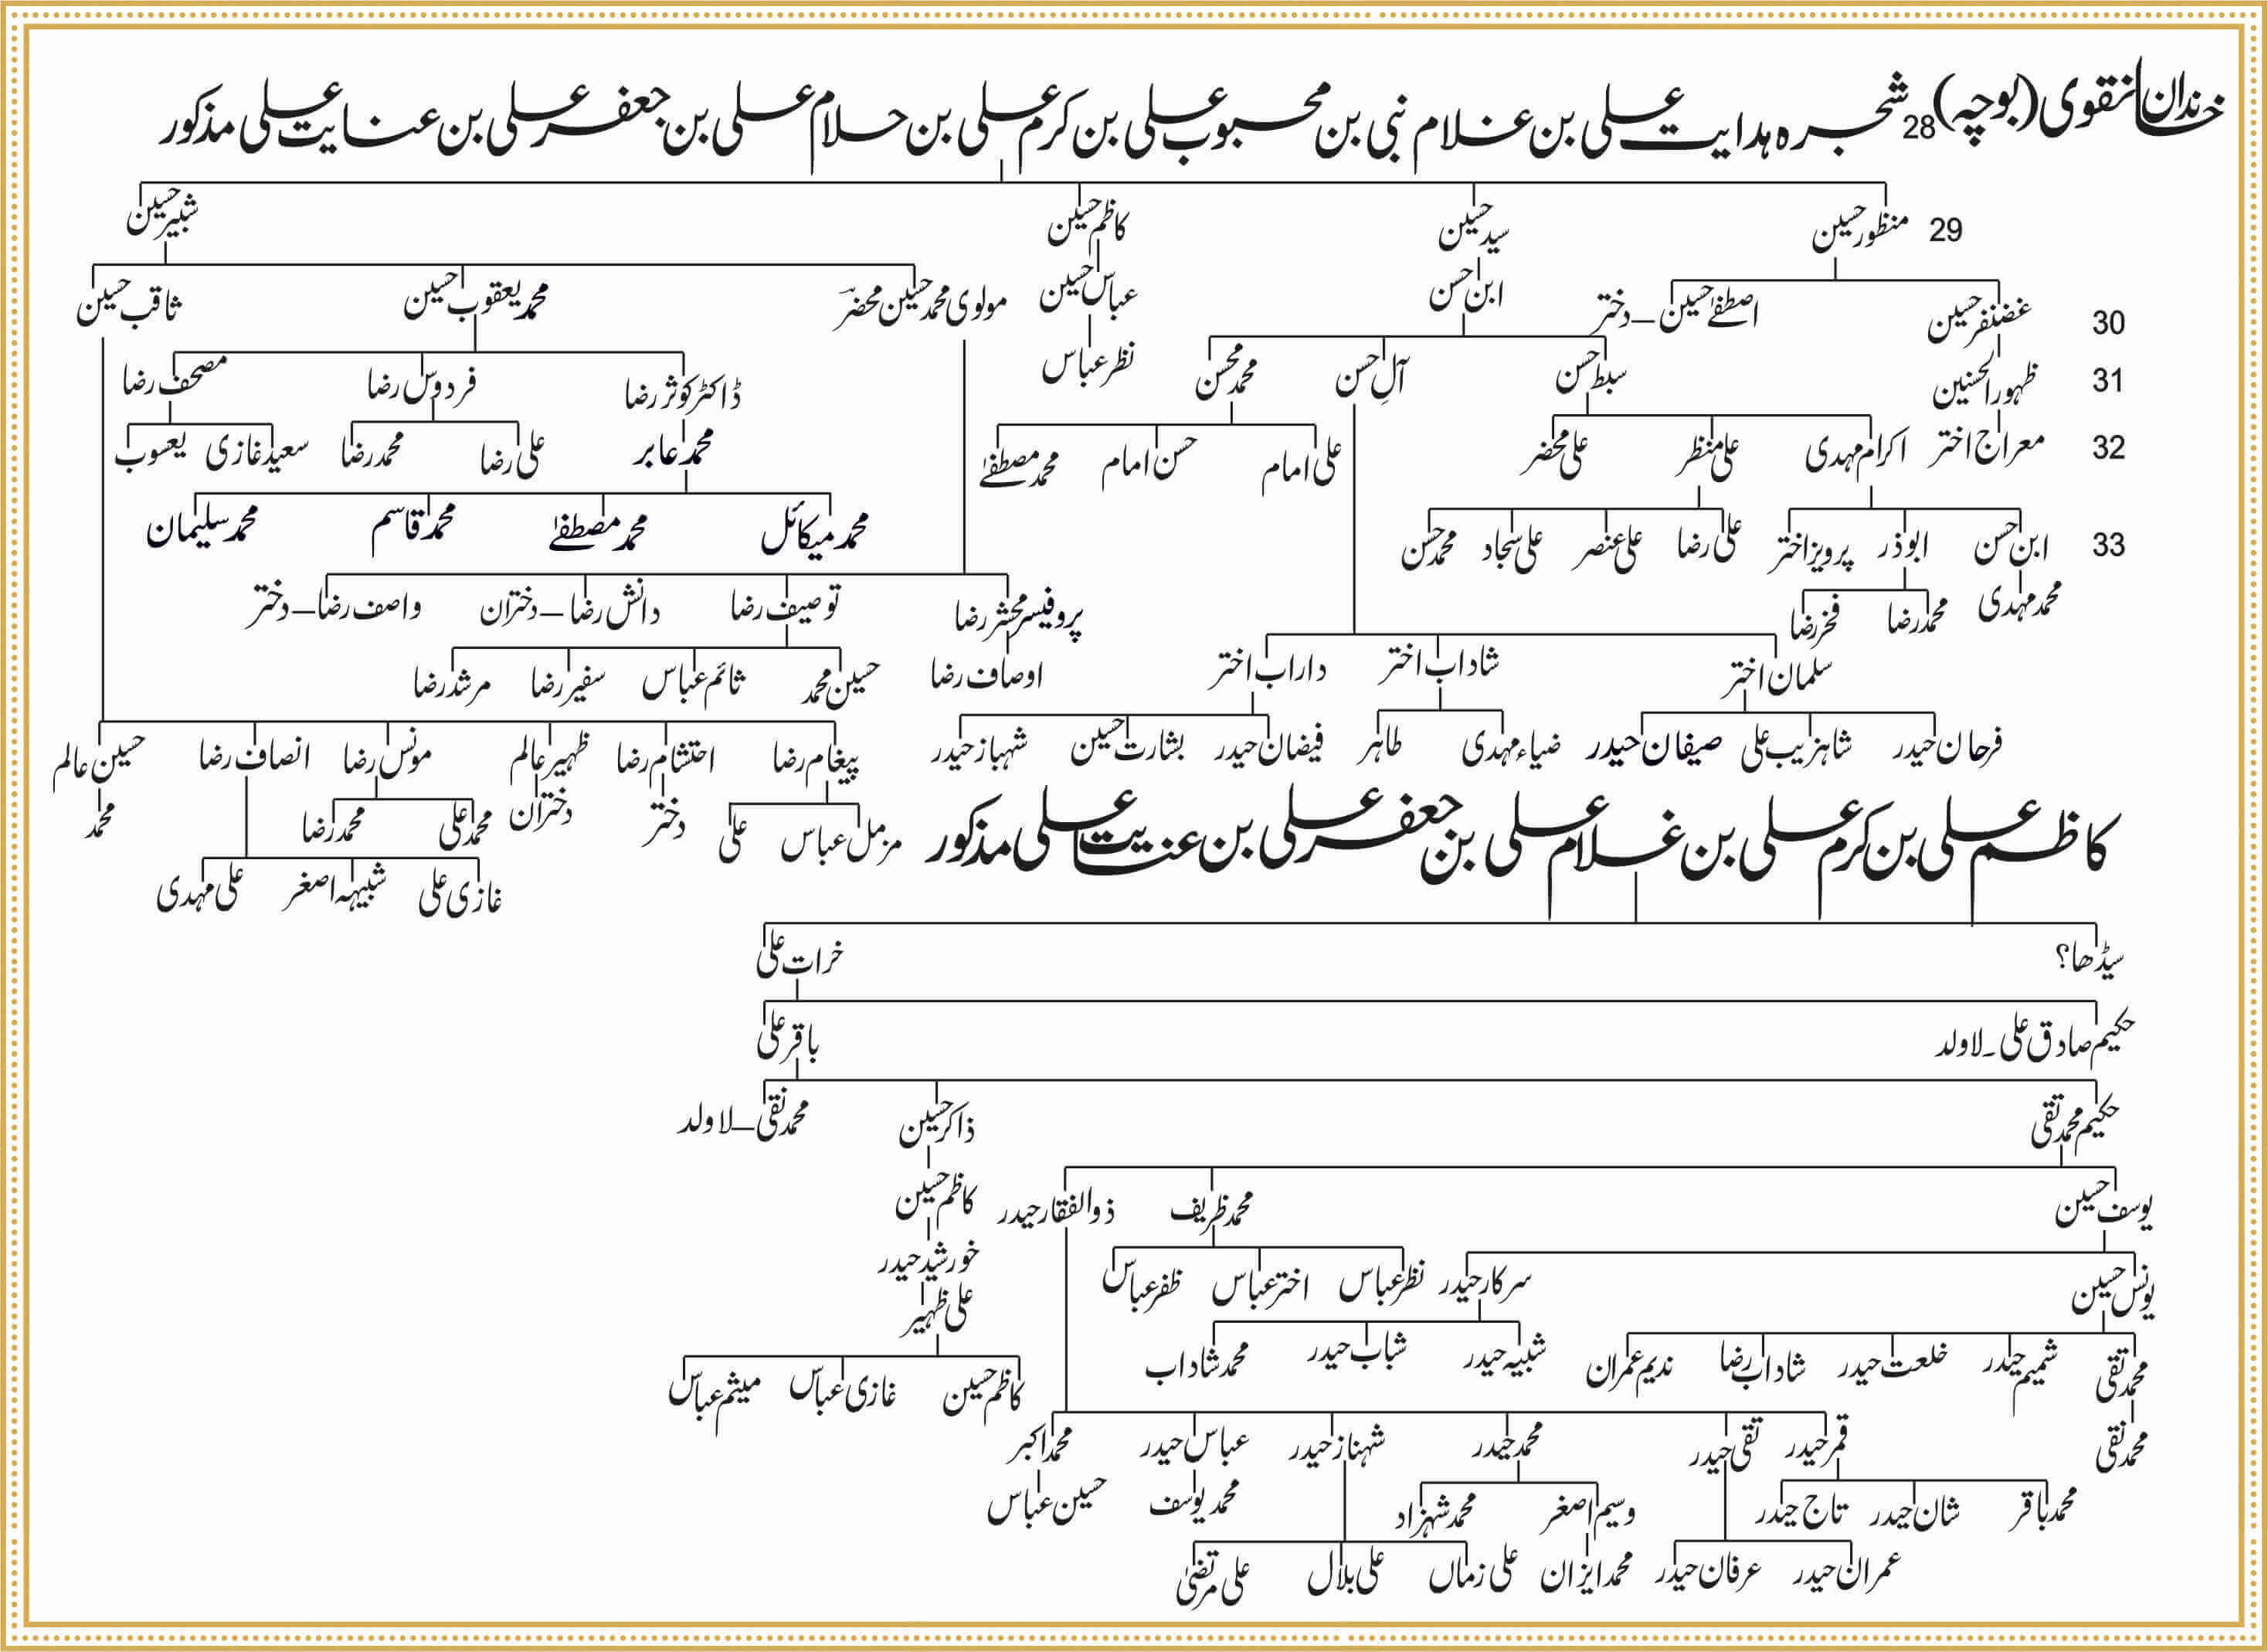 خاندان نقوی (بوچہ) 28 شجرہ ہدایت علی بن غلام نبی بن محبوب علی بن کرم علی بن حلام علی بن جعفر علی بن عنایت علی مذکور
29 منظور حسین سید حسین کاظم حسین شبیر حسین
30 غضنفر حسین اصطفےٰ حسین – دختر ابن حسن عباس حسین مولوی محمد حسین محضرؔ محمد یعقوب حسین ثاقب حسین
31 ظہور الحسنین سبط حسن آلِ حسن محمد محسن نظر عباس ڈاکٹر کوثر رضا فردوس رضا مصحف رضا
32 معراج اختر اکرام مہدی علی منظر علی محضر علی امام حسن امام محمد مصطفےٰ محمد عابر علی رضا محمد رضا سعید غازی یعسوب
33 ابن حسن ابوذر پرویز اختر علی رضا علی عنصر علی سجاد محمد حسن محمد میکائل محمد مصطفےٰ محمد قاسم محمد سلیمان
محمد مہدی محمد رضا فخر رضا پروفیسر محشر رضا توصیف رضا دانش رضا – دختران واصف رضا – دختر
سلمان اختر شاداب اختر داراب اختر اوصاف رضا حسین محمد ثائم عباس سفیر رضا مرشد رضا
فرحان حیدر شاہزیب علی صیفان حیدر ضیاء مہدی طاہر فیضان حیدر بشارت حسین شہباز حیدر پیغام رضا احتشام رضا ظہیر عالم مونس رضا انصاف رضا حسین عالم
مزمل عباس علی دختر دختران محمد علی محمد رضا محمد
غازی علی شبیہہ اصغر علی مہدی
کاظم علی بن کرم علی بن غلام علی بن جعفر علی بن عنایت علی مذکور
سیڈھا؟ خرات علی
حکیم صادق علی - لاولد باقر علی
حکیم محمد تقی ذاکر حسین محمد نقی – لاولد
یوسف حسین محمد ظریف ذوالفقار حیدر کاظم حسین
یونس حسین سرکار حیدر نظر عباس اختر عباس ظفر عباس خورشید حیدر
علی ظہیر
محمد تقی شمیم حیدر خلعت حیدر شاداب رضا ندیم عمران شبیہ حیدر شباب حیدر محمد شاداب کاظم حسین غازی عباس میثم عباس
محمد نقی قمر حیدر تقی حیدر محمد حیدر شہناز حیدر عباس حیدر محمد اکبر
محمد باقر شان حیدر تاج حیدر وسیم اصغر محمد شہزاد محمد یوسف حسین عباس
عمران حیدر عرفان حیدر محمد ایزان علی زماں علی بلال علی مرتضیٰ